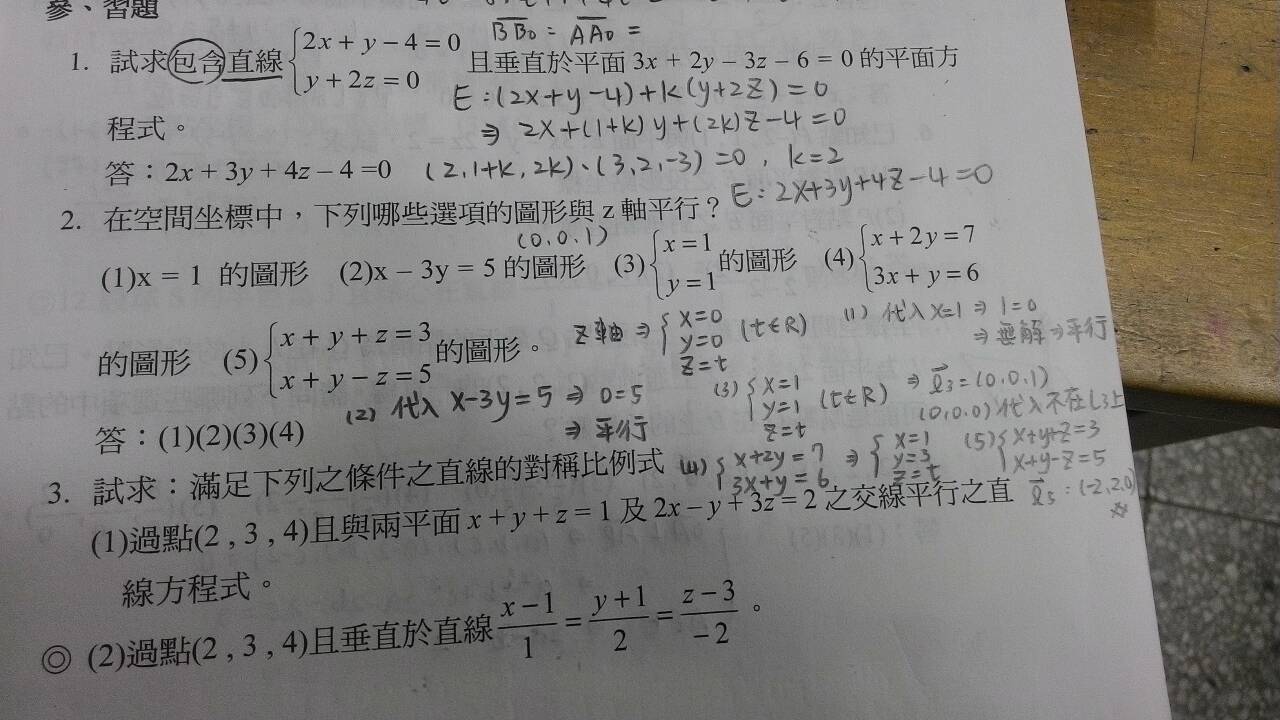 參、習題
B̅B̅₀ = A̅A̅₀ =
1. 試求包含直線 { 2x + y − 4 = 0
y + 2z = 0 且垂直於平面 3x + 2y − 3z − 6 = 0 的平面方
E:(2x+y-4)+k(y+2z)=0
程式。 ⇒ 2x+(1+k)y+(2k)z-4=0
答:2x + 3y + 4z – 4 =0 (2,1+k,2k)、(3,2,-3)=0, k=2
E:2x+3y+4z-4=0
2. 在空間坐標中,下列哪些選項的圖形與 z 軸平行?
(0.0.1)
(1)x = 1 的圖形 (2)x – 3y = 5 的圖形 (3){ x = 1
y = 1 的圖形 (4){ x + 2y = 7
3x + y = 6
的圖形 (5){ x + y + z = 3
x + y − z = 5 的圖形。
z軸 ⇒ { x=0
y=0
z=t (t∈R)
(1) 代入 x=1 ⇒ 1=0
⇒ 無解 ⇒ 平行.
(2) 代入 x-3y=5 ⇒ 0=5
⇒ 平行
(3) { x=1
y=1
z=t (t∈R) ⇒ ℓ⃗₃=(0.0.1)
(0,0.0)代入不在L3上
答:(1)(2)(3)(4)
(4) { x+2y=7
3x+y=6 ⇒ { x=1
y=3
z=t
(5) { x+y+z=3
x+y-z=5
ℓ⃗₅:(-2,2,0)
3. 試求:滿足下列之條件之直線的對稱比例式
(1)過點(2 , 3 , 4)且與兩平面 x + y + z = 1 及 2x − y + 3z = 2 之交線平行之直
線方程式。
◎ (2)過點(2 , 3 , 4)且垂直於直線 (x − 1)/1 = (y + 1)/2 = (z − 3)/−2 。